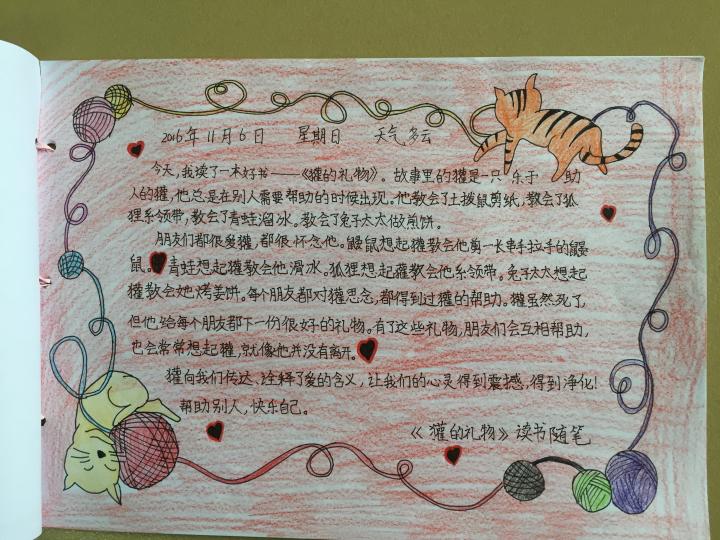 2016年11月6日 星期日 天气多云
今天,我读了一本好书——《獾的礼物》。故事里的獾是一只乐于助
人的獾,他总是在别人需要帮助的时候出现。他教会了土拨鼠剪纸,教会了狐
狸系领带,教会了青蛙溜冰。教会了兔子太太做煎饼。
朋友们都很爱獾,都很怀念他。鼹鼠想起獾教会他剪一长串手拉手的鼹
鼠。青蛙想起獾教会他滑冰。狐狸想起獾教会他系领带。兔子太太想起
獾教会她烤姜饼。每个朋友都对獾思念,都得到过獾的帮助。獾虽然死了,
但他给每个朋友都下一份很好的礼物。有了这些礼物,朋友们会互相帮助,
也会常常想起獾,就像他并没有离开。
獾向我们传达、诠释了爱的含义,让我们的心灵得到震撼,得到净化!
帮助别人,快乐自己。
《獾的礼物》读书随笔